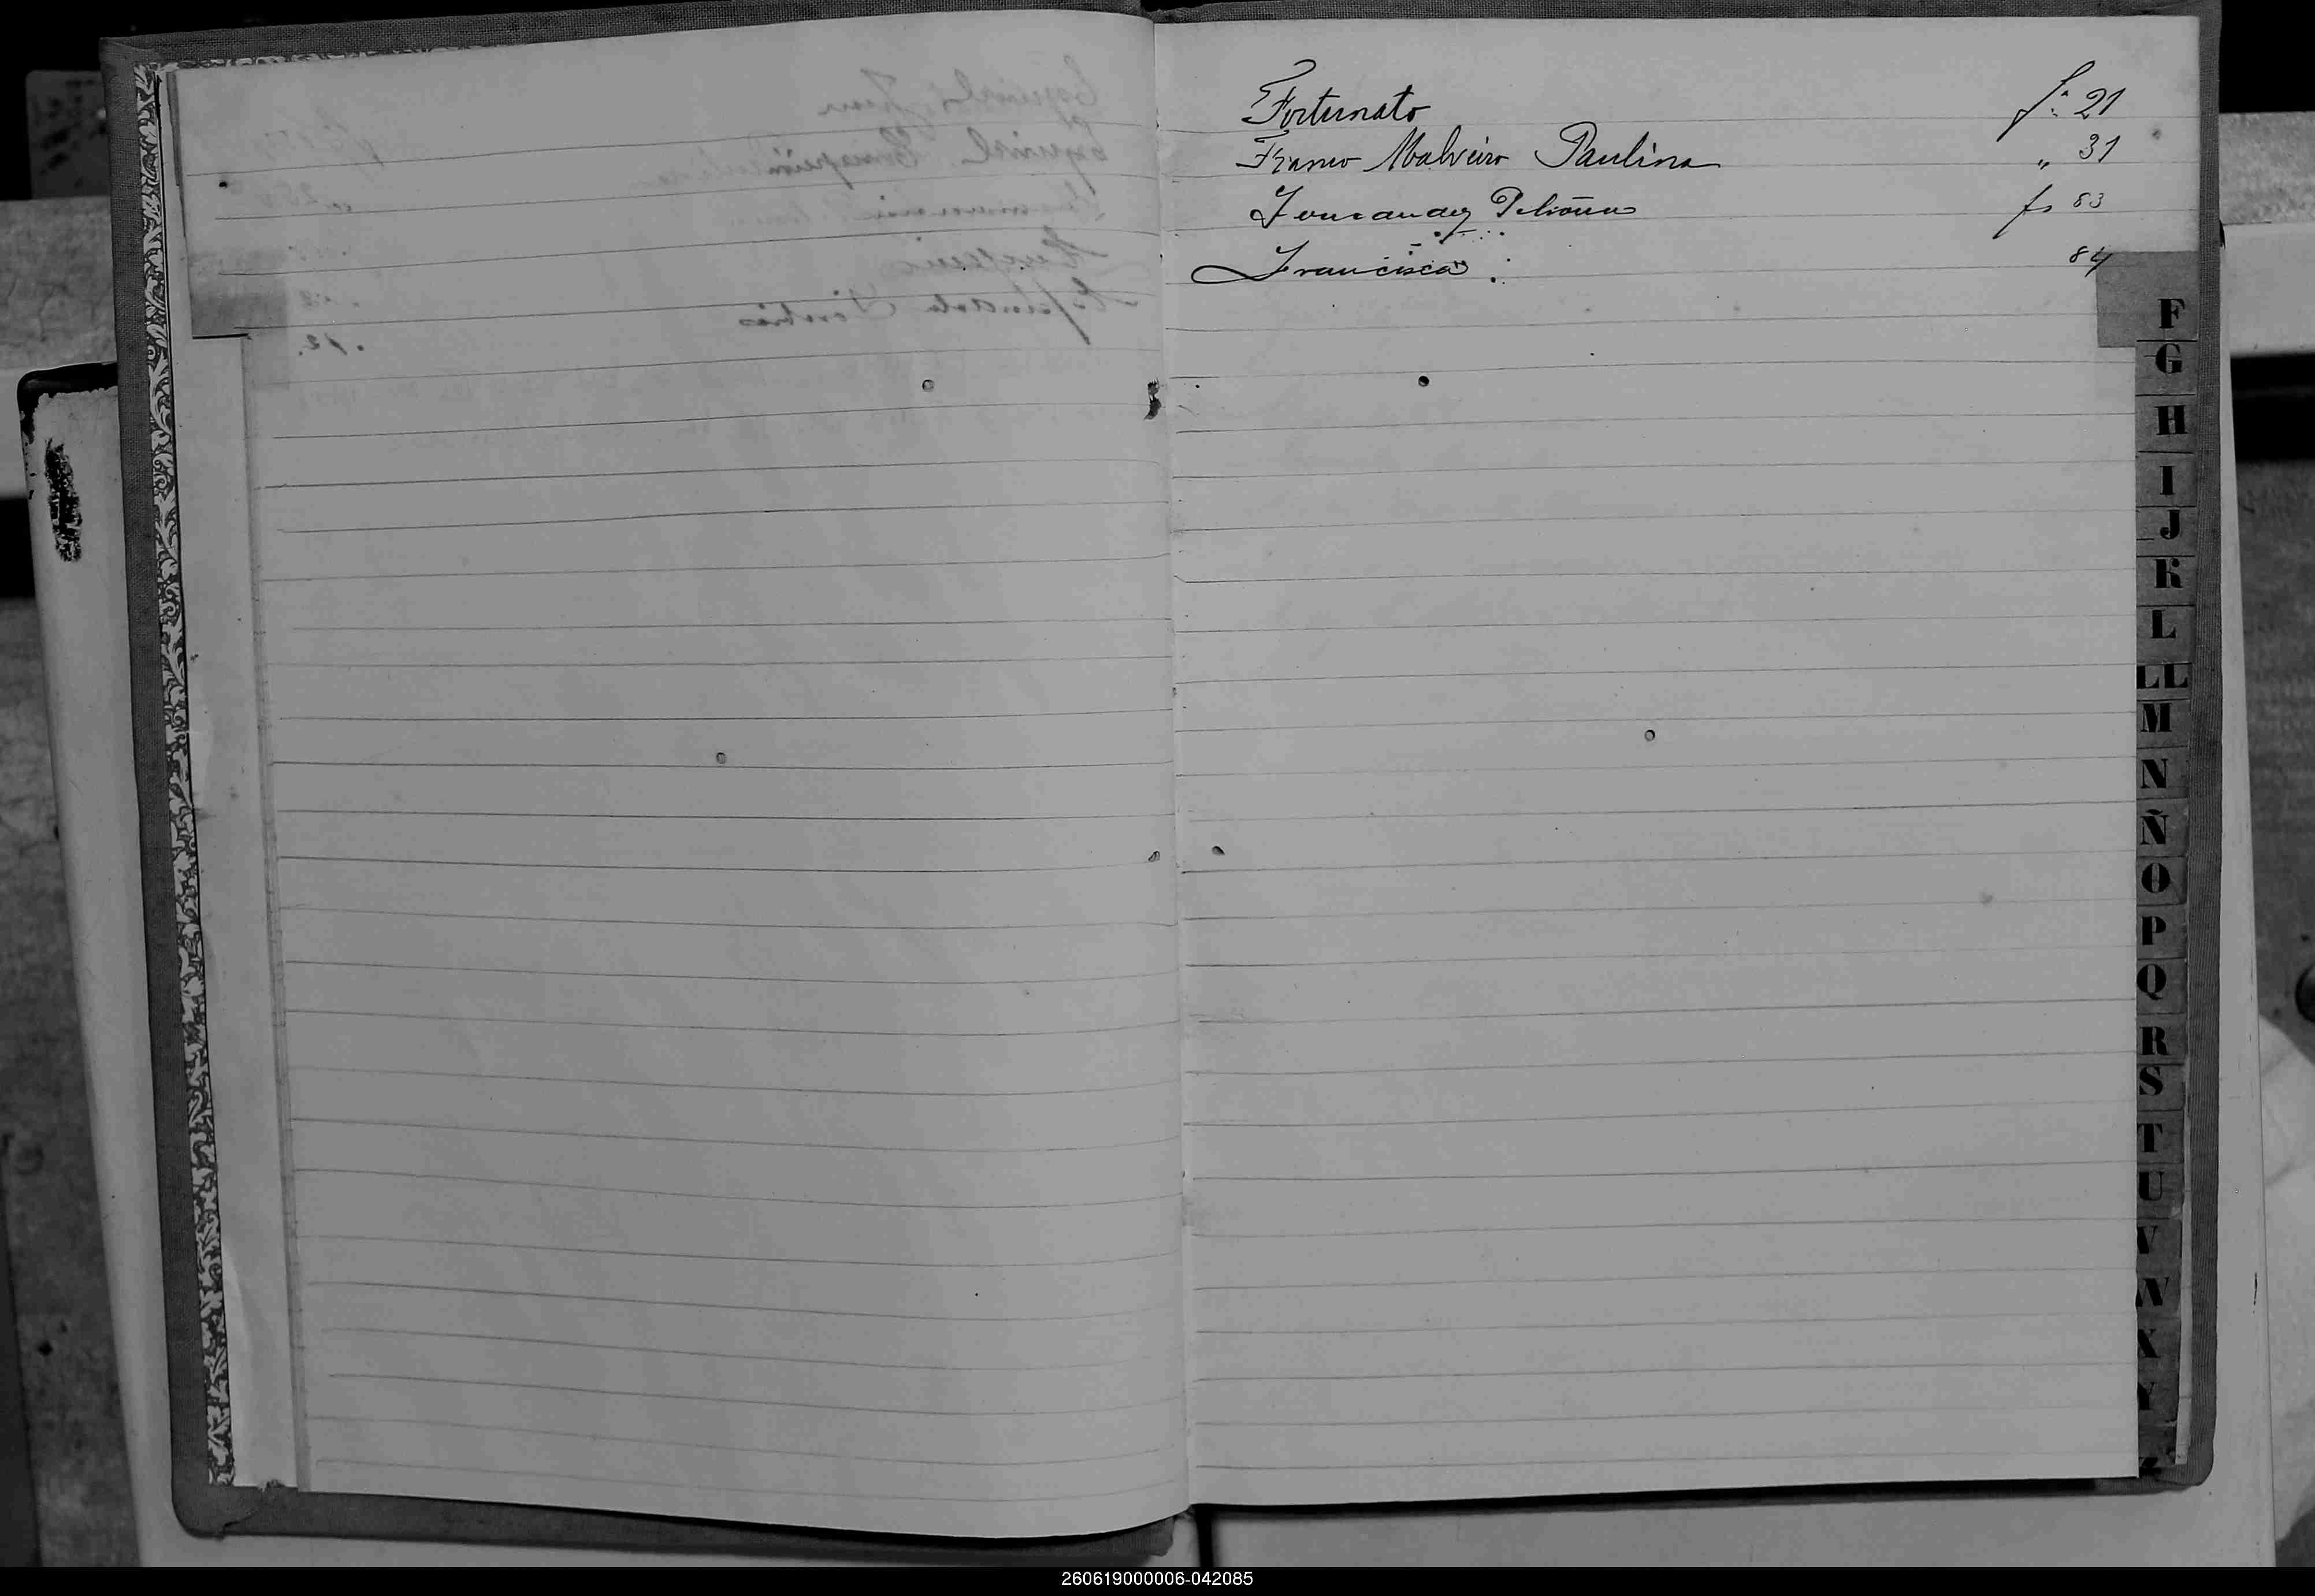 Fortunato fs 21
Franco Malveiro Paulina " 31
Fernandez fs 83
Francisca 84
F
G
H
I
J
K
L
LL
M
N
Ñ
O
P
Q
R
S
T
U
V
W
X
Y
Z
260619000006-042085